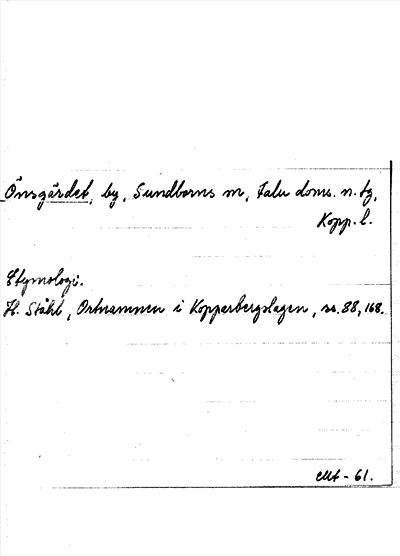 Önsgärdet, by, Sundborns sn, Falu doms. n. tg,
Kopp. l.
Etymologi.
H. Ståhl, Ortnamnen i Kopparbergslagen, ss. 88, 168.
- 61.